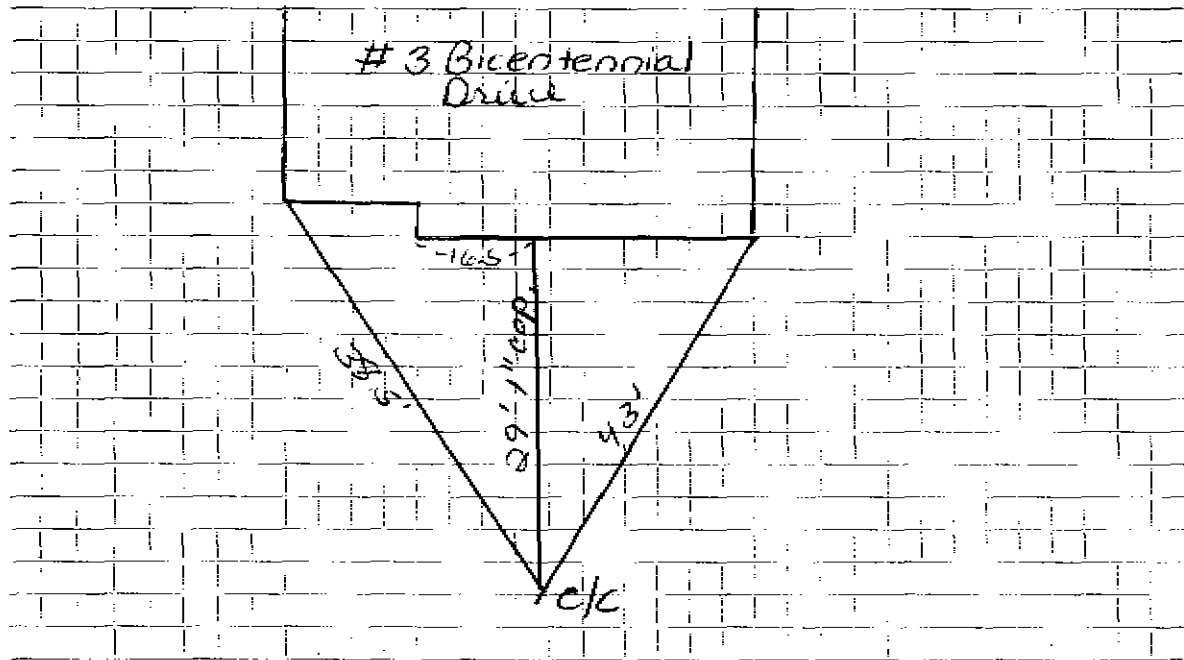 # 3 Bicentennial
Drive
-16.5-
29'-1" cop.
43'
c/c